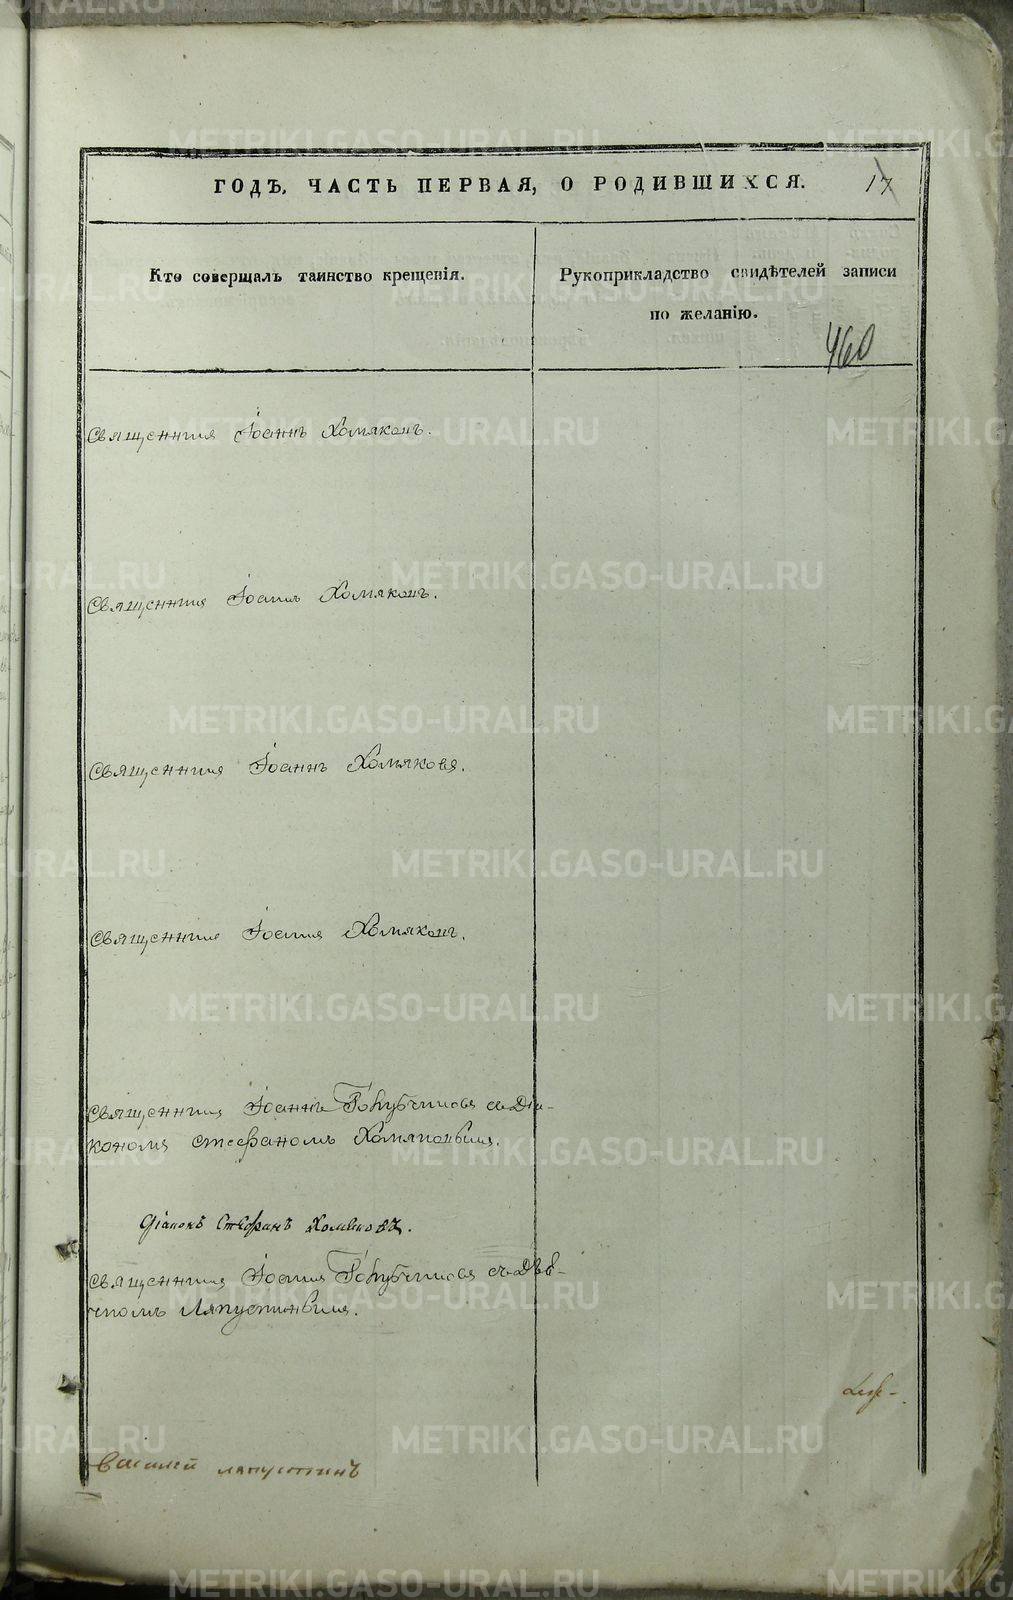 ГОДЪ, ЧАСТЬ ПЕРВАЯ, О РОДИВШИХСЯ. 17
Кто совершалъ таинство крещенія.
Рукоприкладство свидѣтелей записи
по желанію.
460
Священник Іоаннъ Хомяковъ.
Священник Іоаннъ Хомяковъ.
Священник Іоаннъ Хомяковъ.
Священник Іоаннъ Хомяковъ.
Священник Іоаннъ Голубчиковъ съ Діа-
кономъ Стефаномъ Хомяковымъ.
Діаконъ Стефанъ Хомяковъ.
Священник Іоаннъ Голубчиковъ съ Дья-
чкомъ Ляпустинымъ.
Василей Ляпустинъ
METRIKI.GASO-URAL.RU